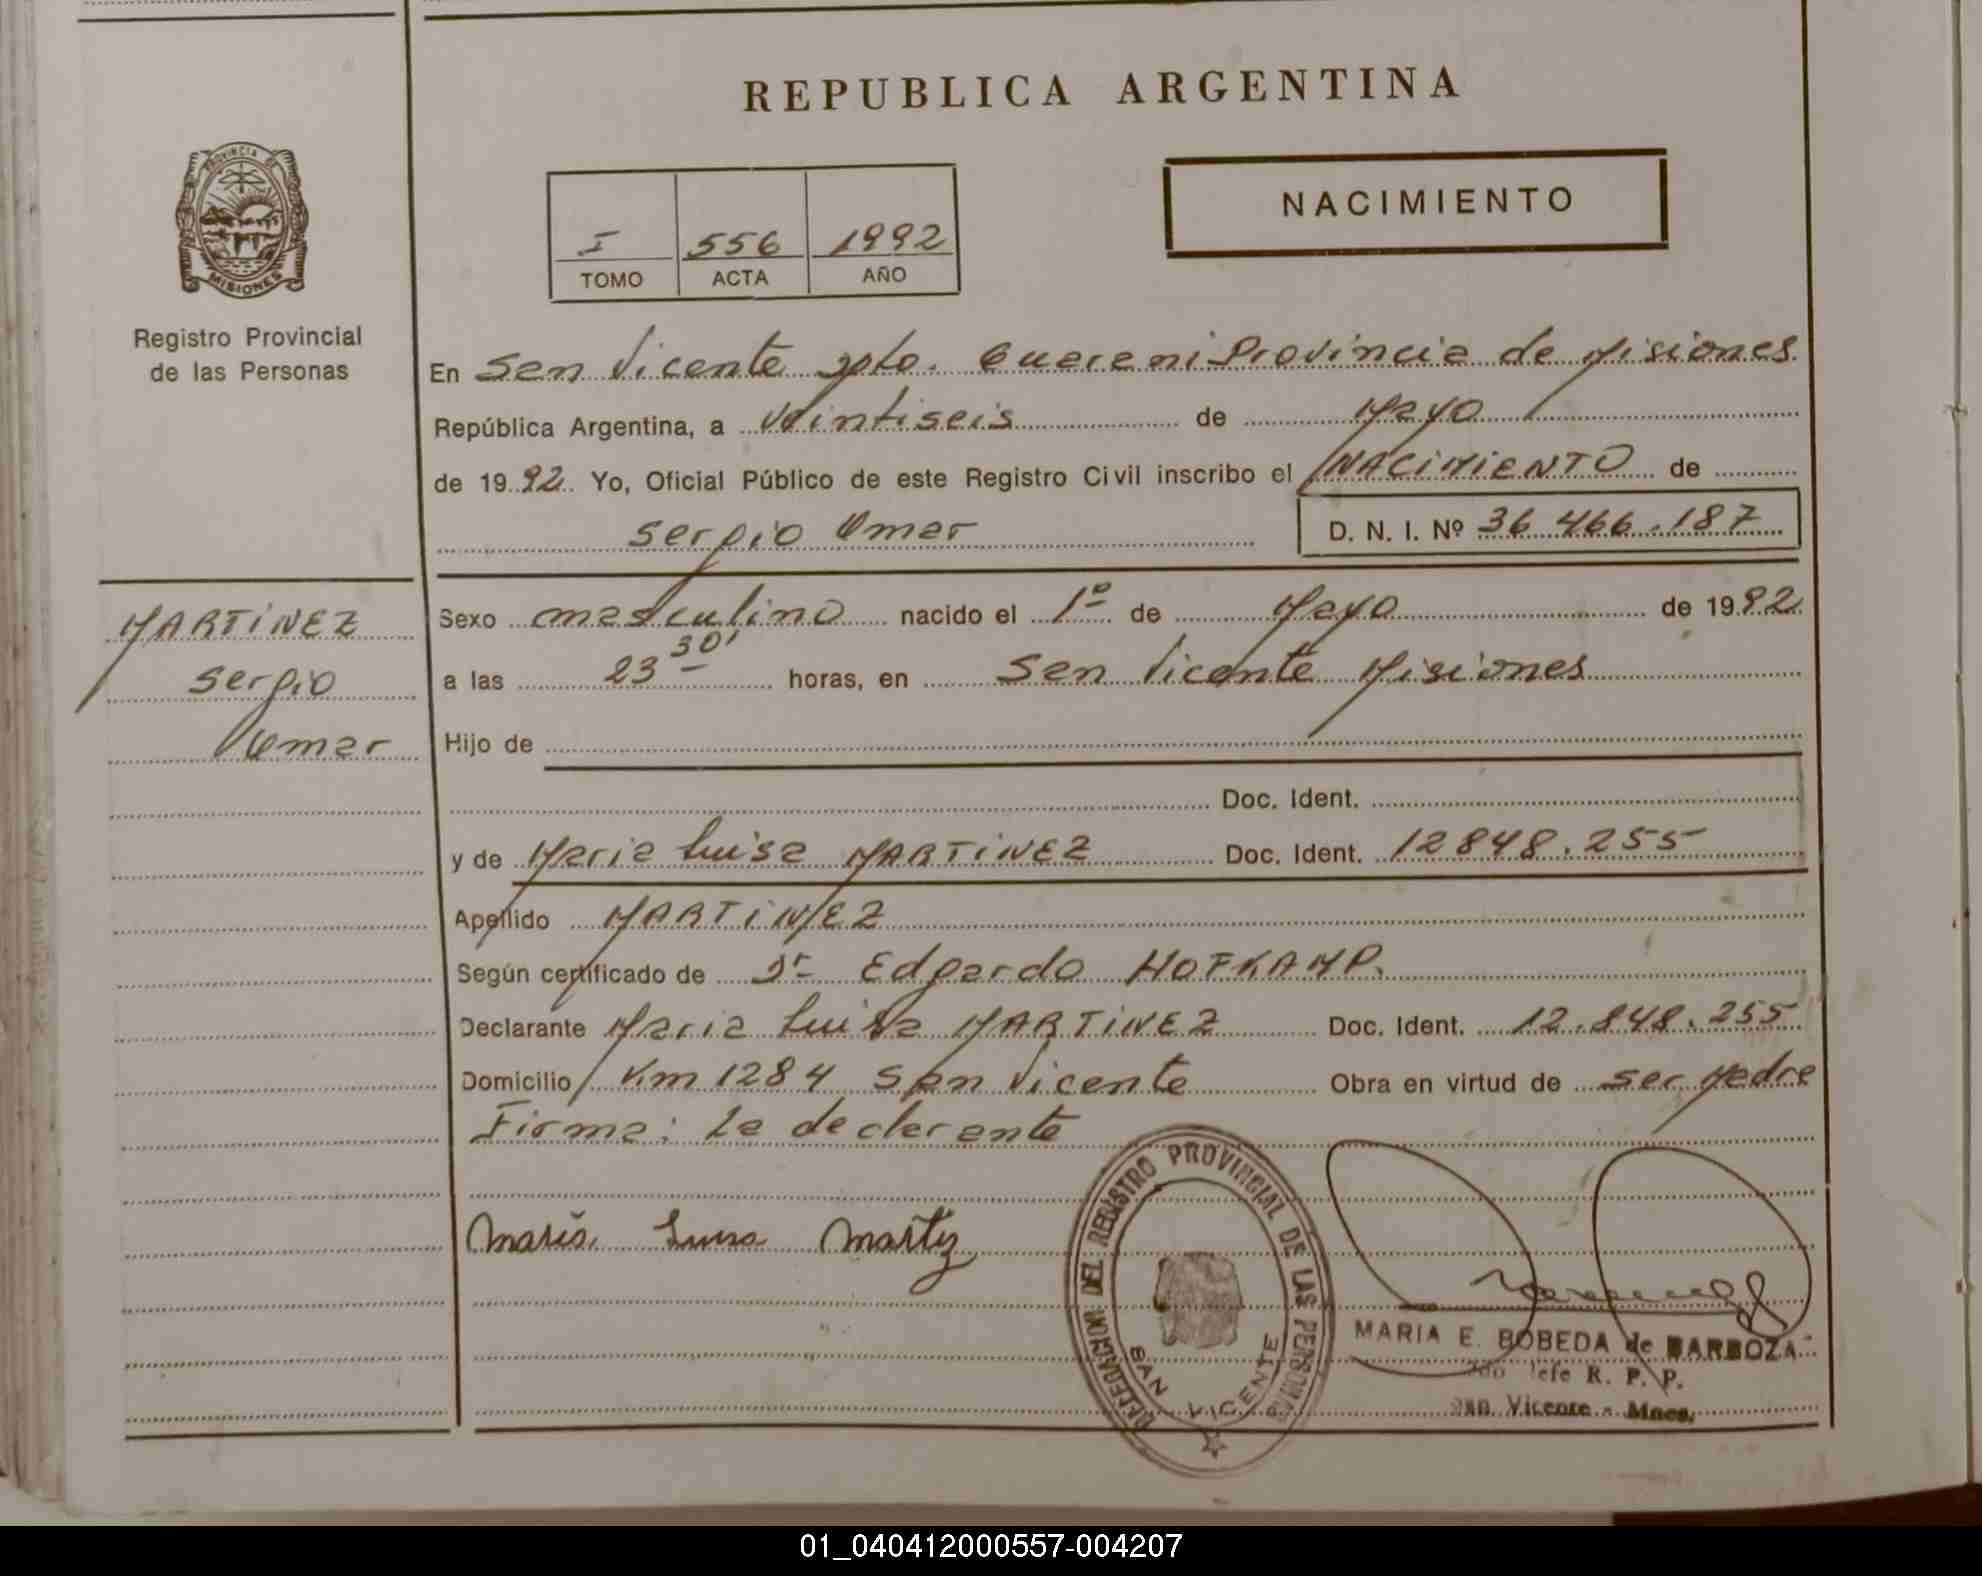 REPUBLICA ARGENTINA
PROVINCIA DE
MISIONES
Registro Provincial
de las Personas
NACIMIENTO
I 556 1992
TOMO ACTA AÑO
En San Vicente Dpto. Guarani Provincia de Misiones
República Argentina, a veintiseis de Mayo
de 1992. Yo, Oficial Público de este Registro Civil inscribo el NACIMIENTO de
Sergio Omar D. N. I. Nº 36 466.187
MARTINEZ
Sergio
Omar
Sexo masculino nacido el 1º de Mayo de 1992
a las 23 30' horas, en San Vicente Misiones
Hijo de
Doc. Ident.
y de Maria Luisa MARTINEZ Doc. Ident. 12848.255
Apellido MARTINEZ
Según certificado de Dr Edgardo HOFKAMP.
Declarante Maria Luisa MARTINEZ Doc. Ident. 12.848.255
Domicilio Km 1284 San Vicente Obra en virtud de ser Madre
Firma: La declarante
Maria Luisa
DELEGACION DEL REGISTRO PROVINCIAL DE LAS PERSONAS
SAN VICENTE
MARIA E. BOBEDA de BARBOZA
Jefe R. P. P.
San Vicente - Mnes.
01_040412000557-004207